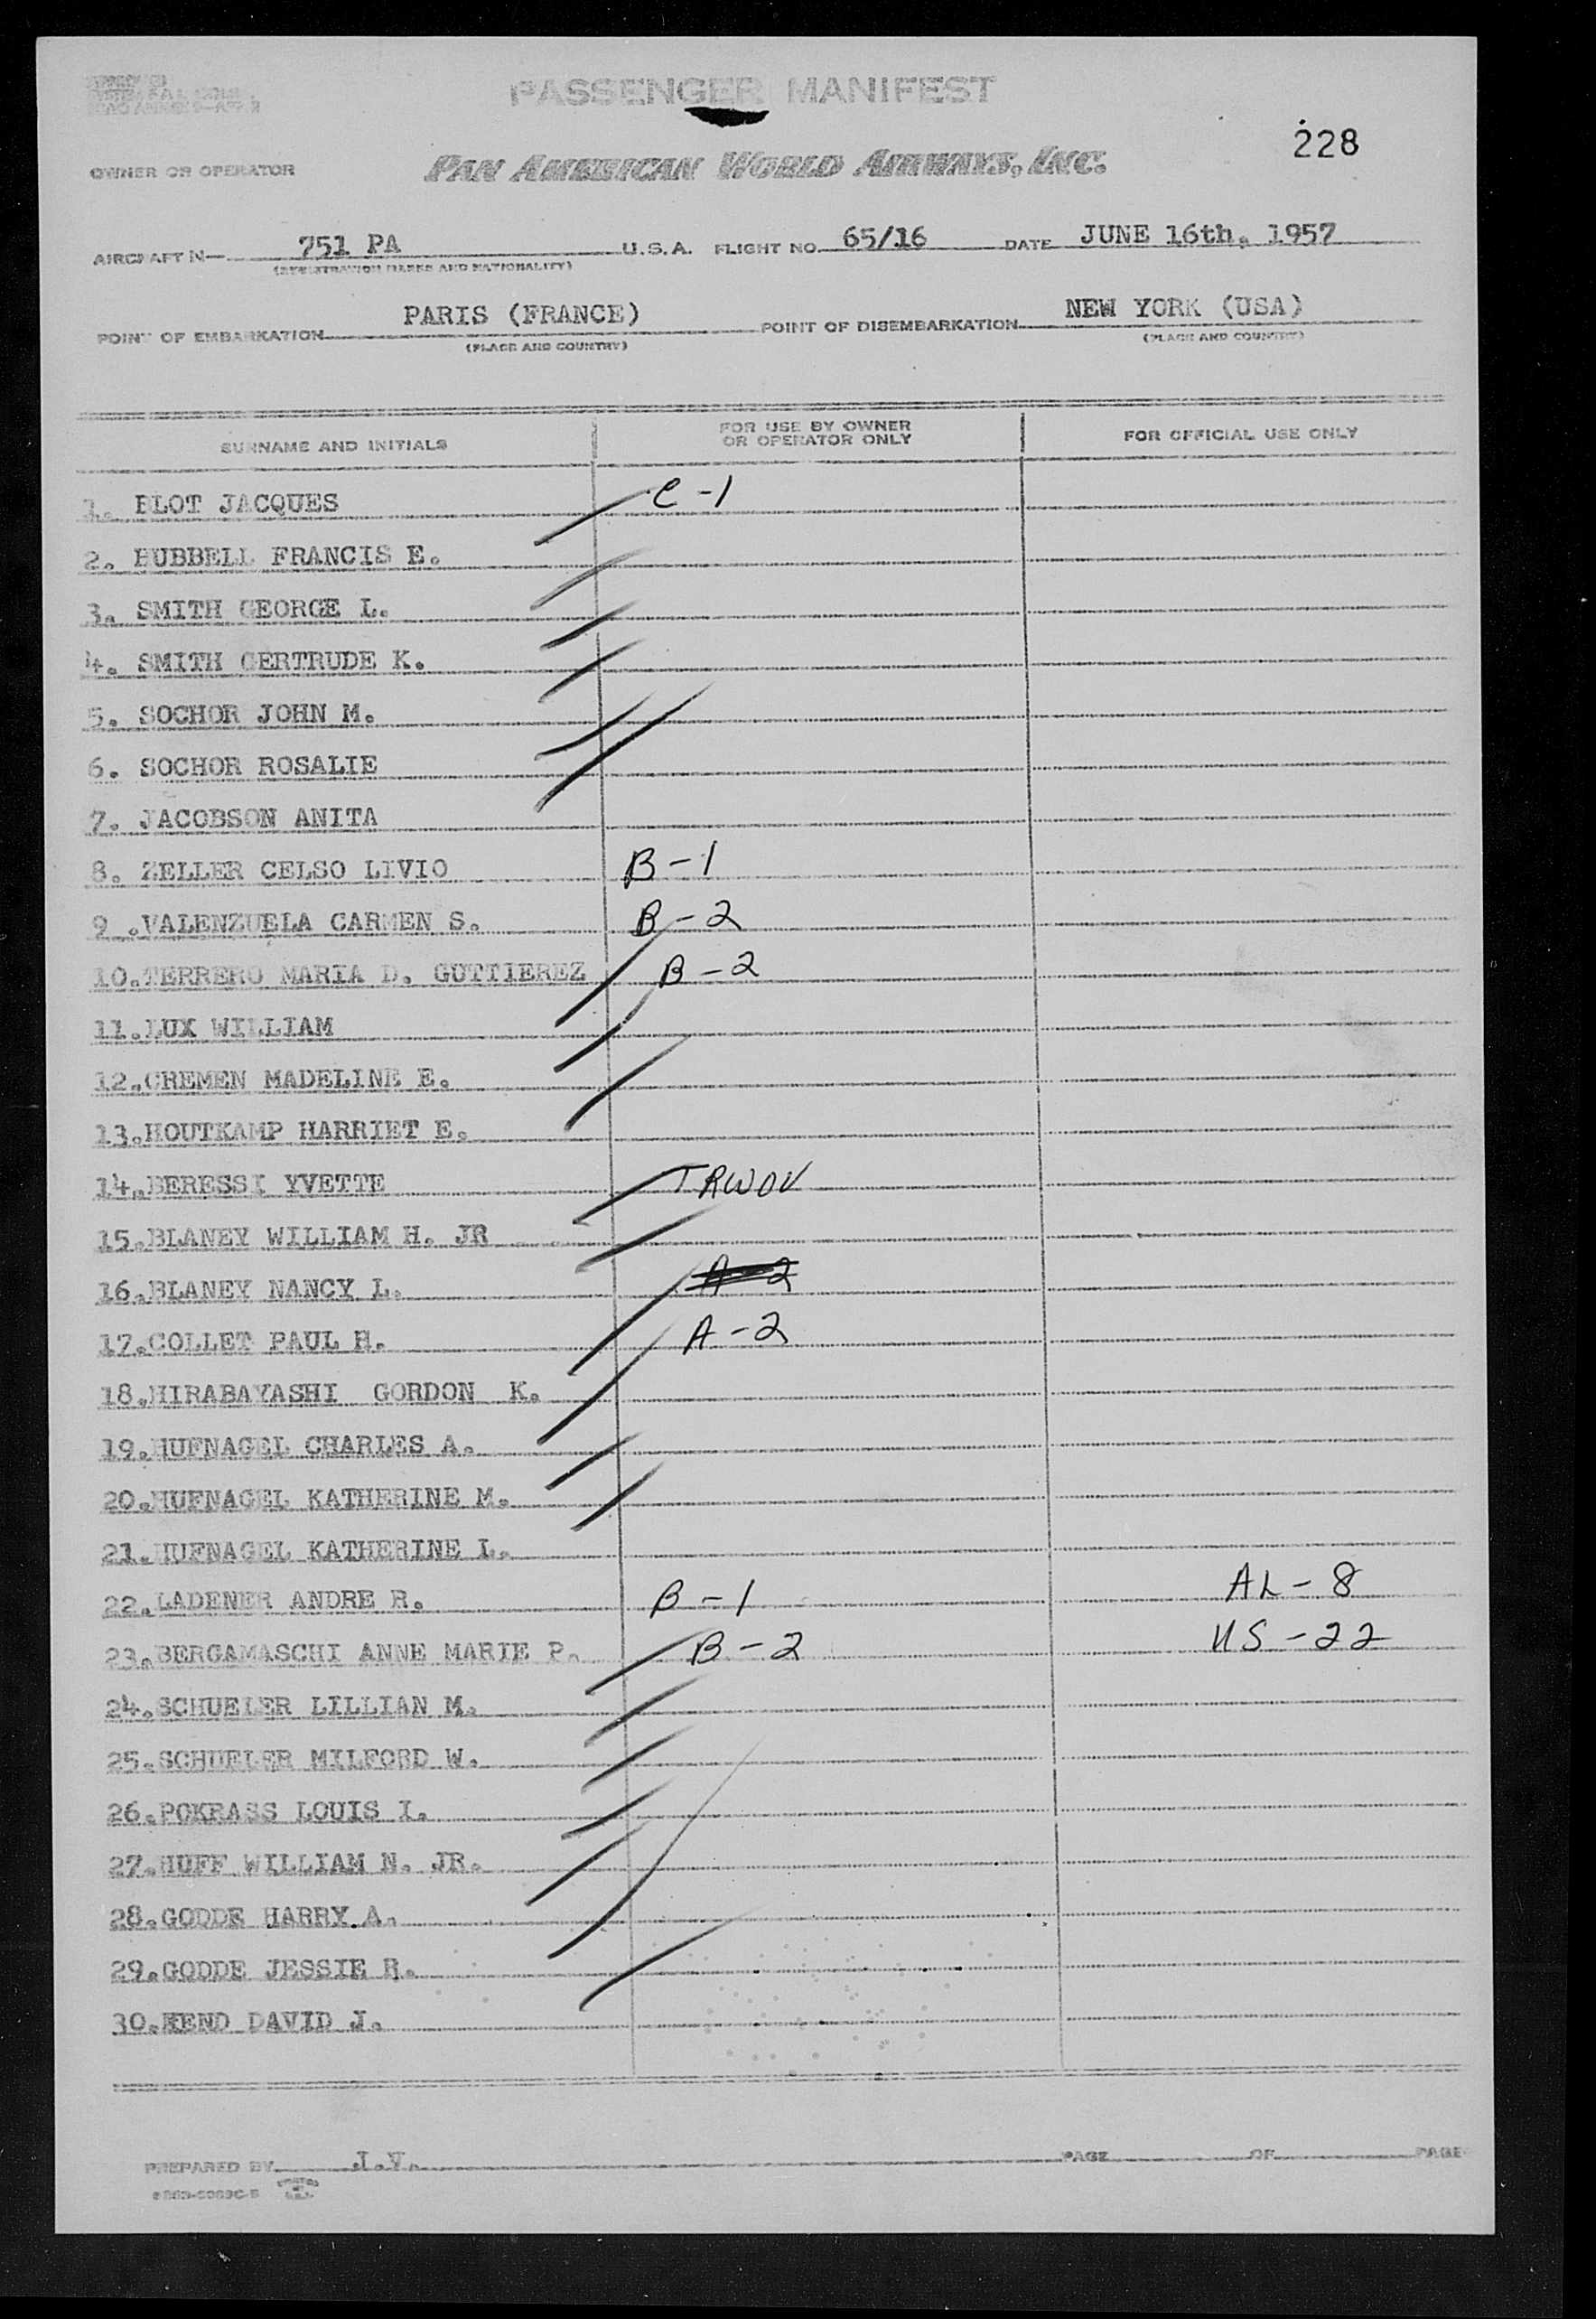 PASSENGER MANIFEST
228
OWNER OR OPERATOR PAN AMERICAN WORLD AIRWAYS, INC.
AIRCRAFT N— 751 PA U.S.A. FLIGHT NO. 65/16 DATE JUNE 16th, 1957
(REGISTRATION MARKS AND NATIONALITY)
POINT OF EMBARKATION PARIS (FRANCE) POINT OF DISEMBARKATION NEW YORK (USA)
(PLACE AND COUNTRY) (PLACE AND COUNTRY)
SURNAME AND INITIALS FOR USE BY OWNER OR OPERATOR ONLY FOR OFFICIAL USE ONLY
1. BLOT JACQUES C-1
2. HUBBELL FRANCIS E.
3. SMITH GEORGE L.
4. SMITH GERTRUDE K.
5. SOCHOR JOHN M.
6. SOCHOR ROSALIE
7. JACOBSON ANITA
8. ZELLER CELSO LIVIO B-1
9 .VALENZUELA CARMEN S. B-2
10.TERRERO MARIA D. GUTTIEREZ B-2
11.LUX WILLIAM
12.CREMEN MADELINE E.
13.HOUTKAMP HARRIET E.
14.BERESSI YVETTE TRWOV
15.BLANEY WILLIAM H. JR
16.BLANEY NANCY L. A-2
17.COLLET PAUL H. A-2
18.HIRABAYASHI GORDON K.
19.HUFNAGEL CHARLES A.
20.HUFNAGEL KATHERINE M.
21.HUFNAGEL KATHERINE L.
22.LADENER ANDRE R. B-1 AL-8
23.BERGAMASCHI ANNE MARIE P. B-2 US-22
24.SCHUELER LILLIAN M.
25.SCHUELER MILFORD W.
26.POKRASS LOUIS I.
27.HUFF WILLIAM N. JR.
28.GODDE HARRY A.
29.GODDE JESSIE R.
30. DAVID J.
PREPARED BY J.V. PAGE OF PAGE